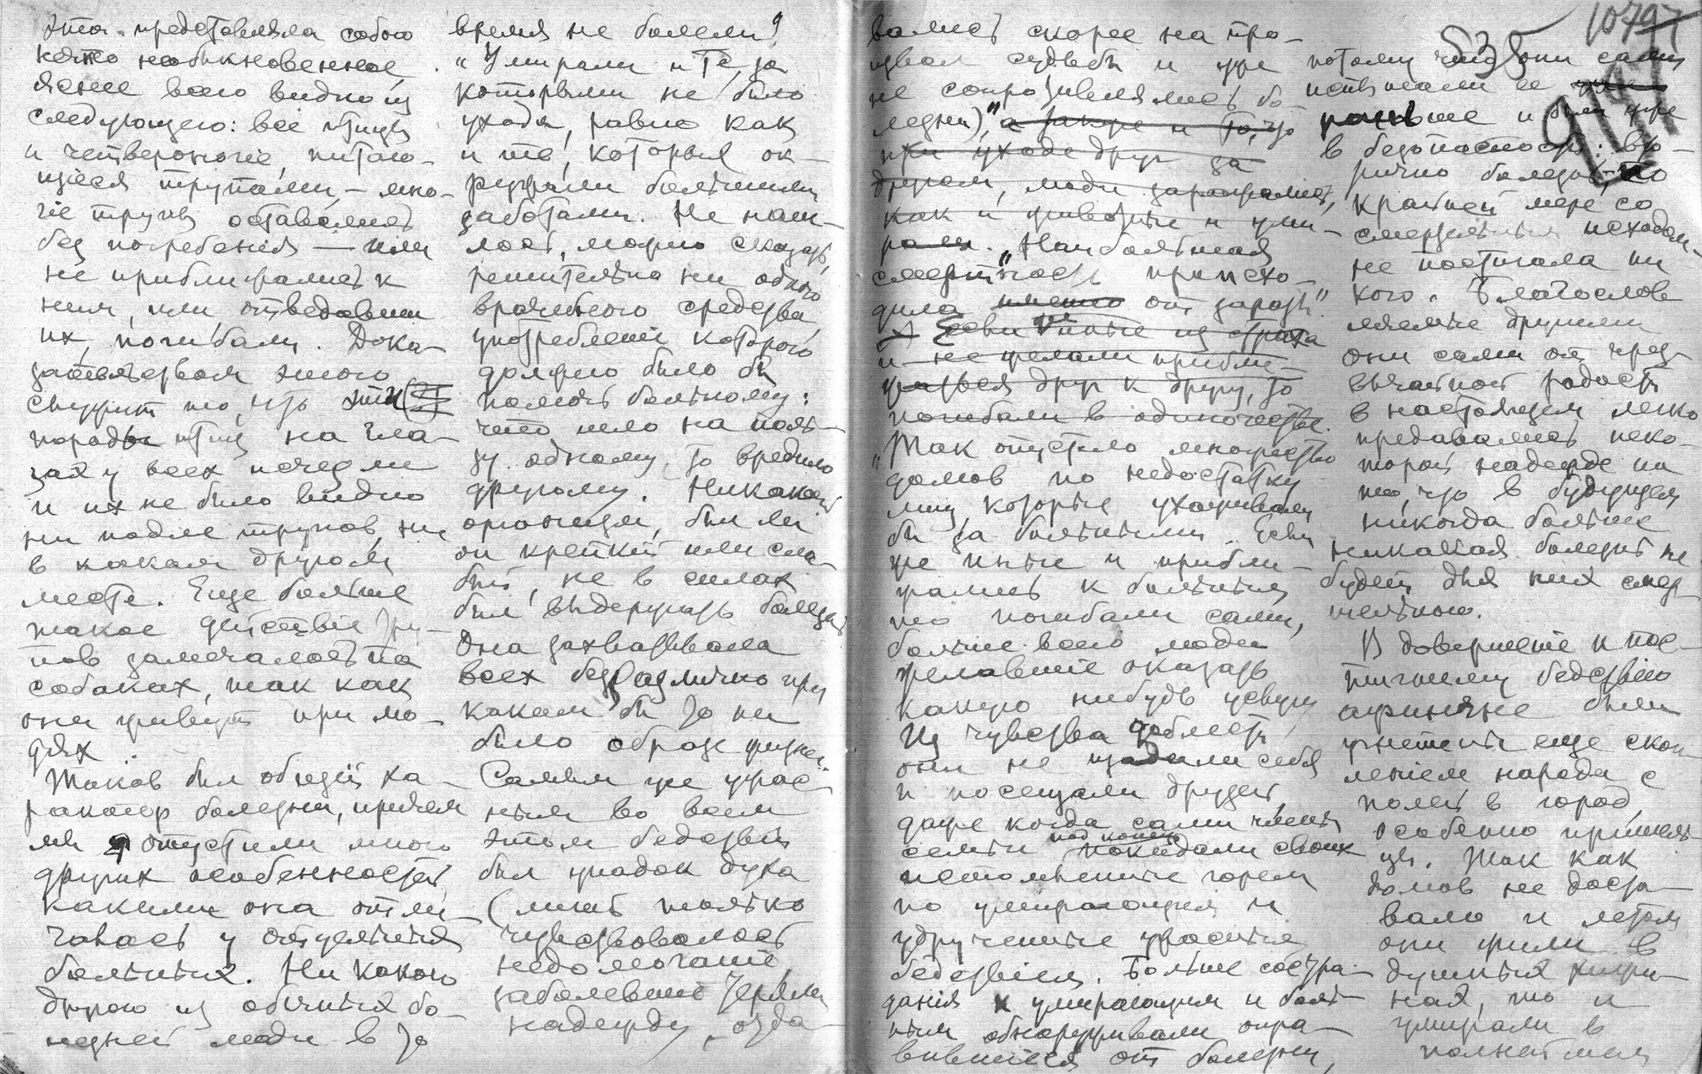 эта представляла собою
нечто необыкновенное,
яснее всего видно из
следующего: все птицы
и четвероногие, питаю-
щіеся трупами, — мно-
гіе трупы оставались
без погребенія — или
не приближались к
ним, или отведавши
их, погибали. Дока-
зательством этого
служит то, что эти
породы птиц на гла-
зах у всех исчезли
и их не было видно
ни подле трупов, ни
в каком другом
месте. Еще больше
такое действіе тру-
пов замечалось на
собаках, так как
они живут при лю-
дях
Таков был общій ха-
рактер болезни, причем
мы опустили много
других особенностей,
какими она отли-
чалась у отдельных
больных. Ни какою
другою из обычных бо-
лезней люди в то
время не болели?
"Умирали и те, за
которыми не было
ухода, равно как
и те, которых ок-
ружали большими
заботами. Не наш-
лось, можно сказать,
решительно ни одного
врачебного средства,
употребленіе которого
должно было бы
помочь больному:
что шло на поль-
зу одному, то вредило
другому. Никакой
организм, был ли
он крепкій или сла-
бый, не в силах
был выдержать болезнь
Она захватывала
всех безразлично при
каком бы то ни
было образе жизни.
Самым же ужас-
ным во всем
этом бедствіи
был упадок духа
(лишь только
чувствовалось
недомоганіе,
заболевшіе теряли
надежду, отда-
вались скорее на про-
извол судьбы и уже
не сопротивлялись бо-
лезни)," а также и то, что
при уходе друг за
другом, люди заражались,
как и животные и уми-
рали. "Наибольшая
смертность происхо-
дила именно от заразы."
Если иные из страха
и не желали прибли-
жаться друг к другу, то
погибали в одиночестве.
"Так опустело множество
домов по недостатку
лиц которые ухаживали
бы за больными. Если
же иные и прибли-
жались к больным
то погибали сами,
больше всего люди
желавшіе оказать
какую нибудь услугу
Из чувства доблести
они не щадили себя
и посещали друзей,
даже когда сами члены
семьи под конец покидали своих
истомленные горем
по умирающим и
удрученные ужасным
бедствіем. Больше состра-
данія к умирающим и боль-
ным обнаруживали опра-
вившіеся от болезни,
10797
535
917
потому что они сами
испытали ее
раньше и были уже
в безопасности: вто-
рично болезнь, по
крайней мере со
смертельным исходом,
не постигала ни
кого. Благослов-
ляемые другими
они сами от чрез-
вычайной радости
в настоящем легко
предавались неко-
торой надежде на
то, что в будущем
никогда больше
никакая болезнь не
будет для них смер-
тельною.
В довершеніе к пос-
тигшему бедствію
афиняне были
угнетены еще скоп-
леніем народа с
полей в город,
особенно пришель-
цы. Так как
домов не доста-
вало и летом
они жили в
душных хижи-
нах, то и
умирали в
полнейшем